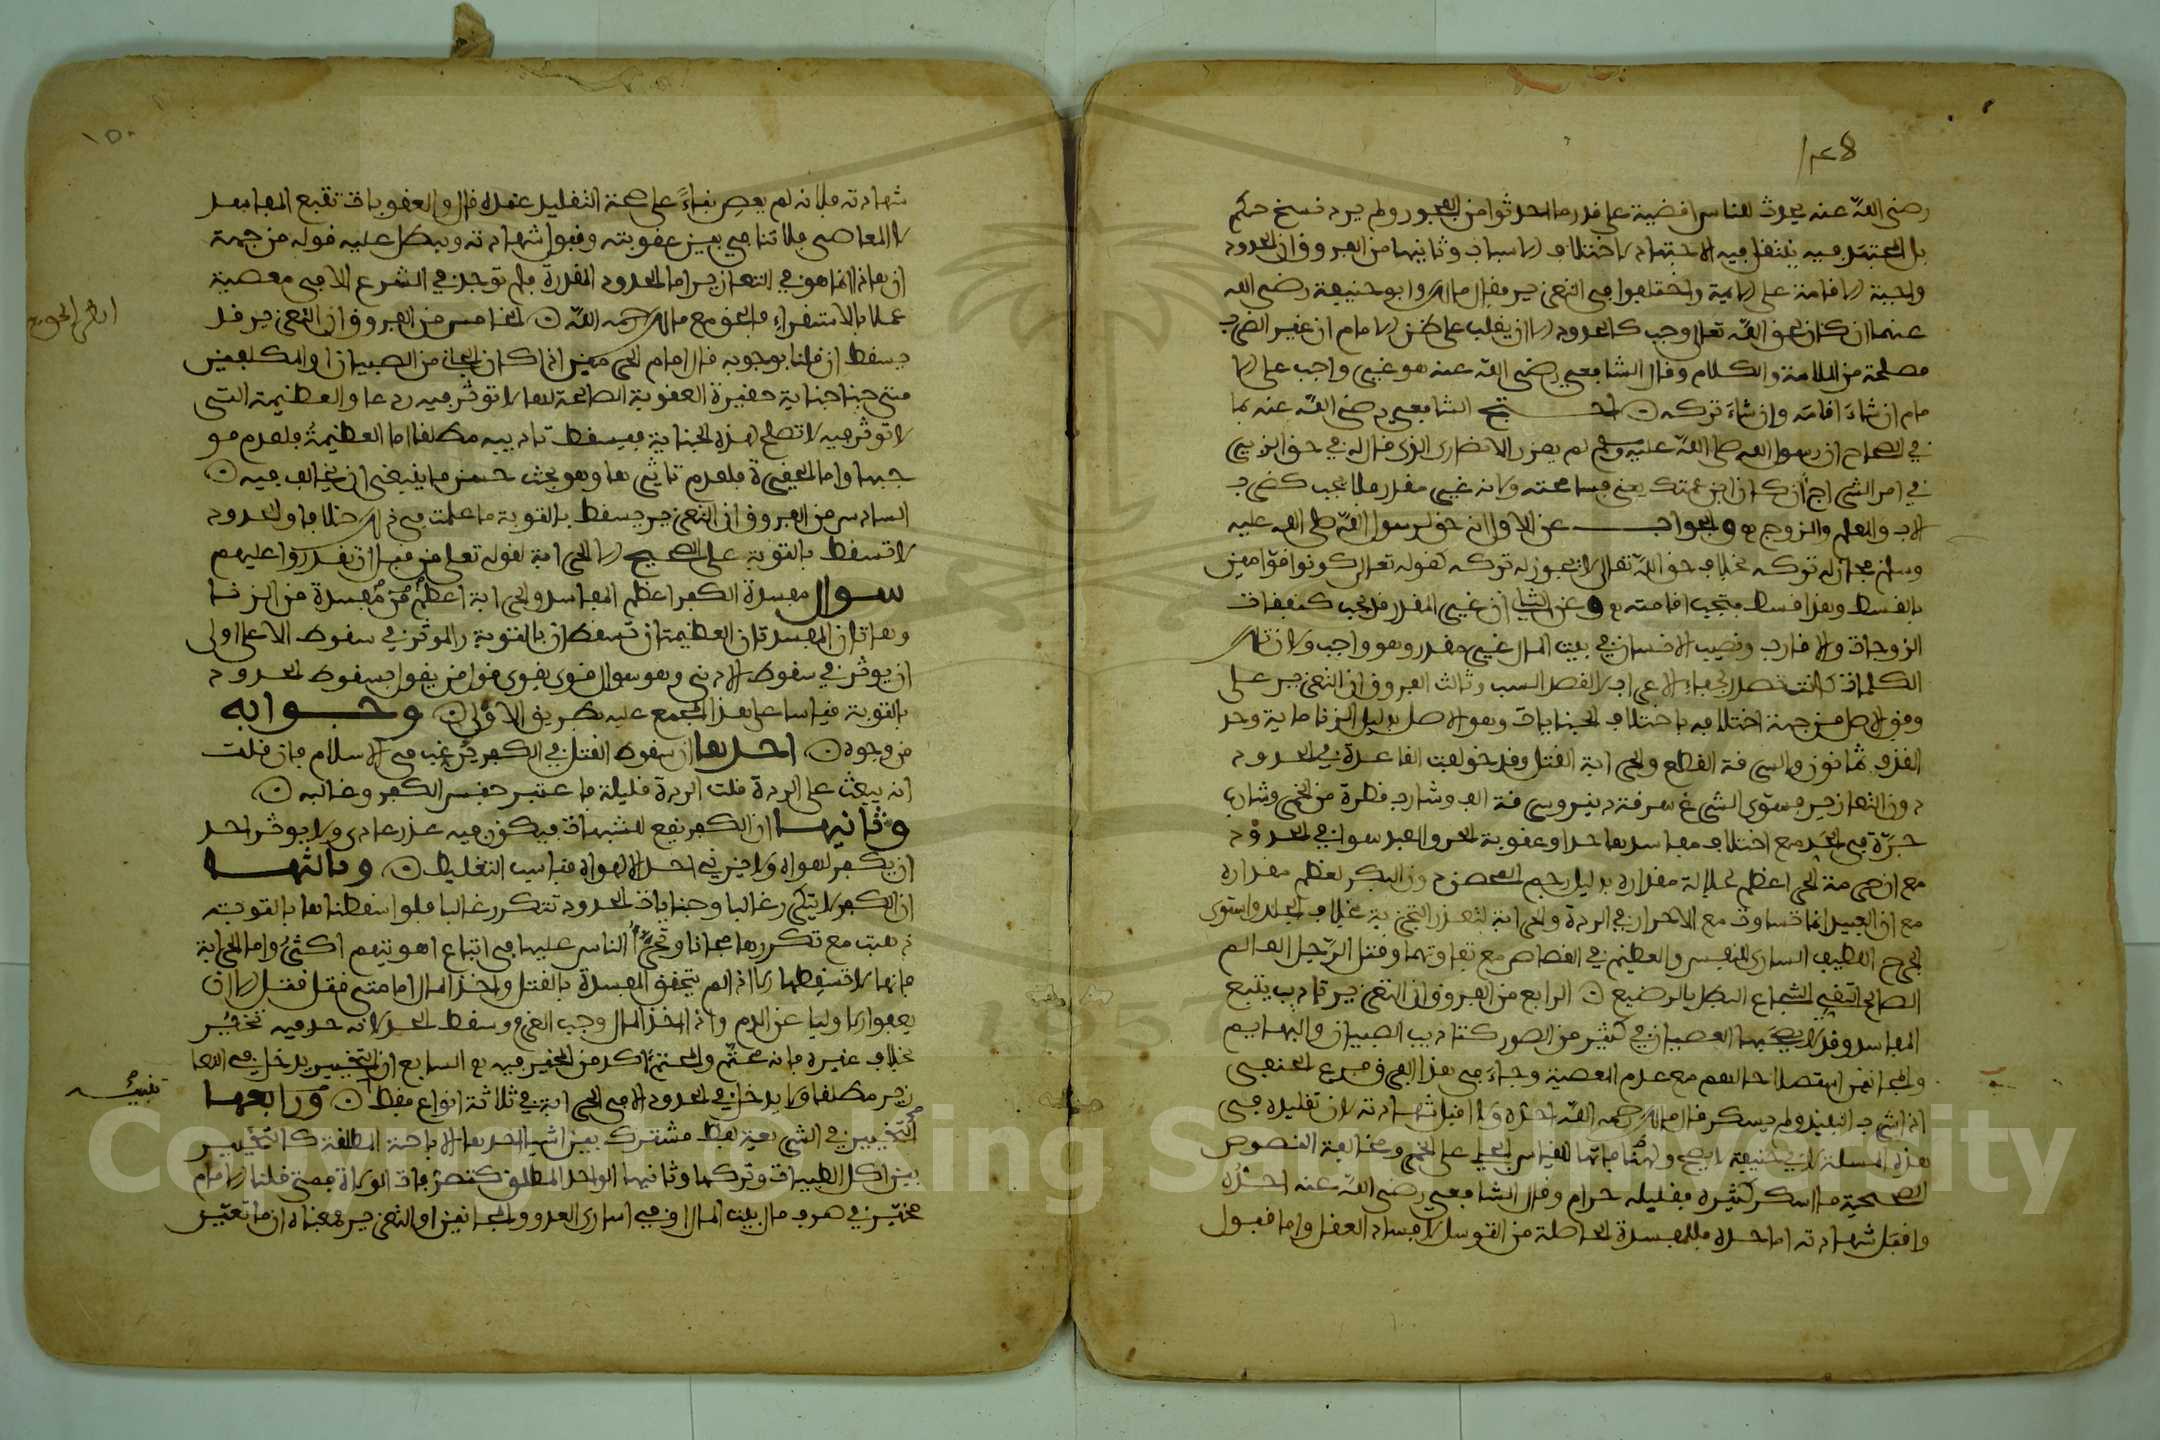 ١٤٨
رضي الله عنه يحدث للناس اقضية على قدر ما احدثوا من الفجور ولم يرد نسخ حكم
بل المجتهد فيه ينتقل فيه الاجتهاد لاختلاف الاسباب وثانيها من الفروق ان الحدود
واجبة الاقامة على الايمة واختلفوا في التعزير فقال مالك وابو حنيفة رضي الله
عنهما ان كان لحق الله تعلى وجب كالحدود الا ان يغلب على ظن الامام ان غير الضرب
مصلحة من الملامة والكلام وقال الشافعي رضي الله عنه هو غير واجب على الا
مام ان شاء اقامه وان شاء تركه احتج الشافعي رضي الله عنه بما
في الصحاح ان رسول الله صلى الله عليه وسلم لم يعزر الانصاري الذي قال له في حق الزبير
في امر الشراج ان كان ابن عمتك يعني فسامحته ولانه غير مقدر فلا يجب كضرب
الاب والمعلم والزوج والجواب عن الاول انه حق لرسول الله صلى الله عليه
وسلم فجاز له تركه بخلاف حق الله تعالى لا يجوز له تركه كقوله تعالى كونوا قوامين
بالقسط وهذا قسط فتجب اقامته وعن الثاني ان غير المقدر قد يجب كنفقات
الزوجات والاقارب ونصيب الانسان في بيت المال غير مقدر وهو واجب ولان تلك
الكلمات كانت تصدر لجفاء الاعراب لا لقصد السب وثالث الفروق ان التعزير على
وفق الاصل من جهة اختلافه باختلاف الجنايات وهو الاصل بدليل الزنا ماية وحد
القذف ثمانون والسرقة القطع والحرابة القتل وقد خولفت القاعدة في الحدود
دون التعازير فسوى الشرع سرقة دينار وسرقة الف وشارب قطرة من الخمر وشارب
جرة في الحد مع اختلاف مفاسدها حدا وعقوبة الحر والعبد سوا في الحدود
مع ان حرمة الحر اعظم لجلالة مقداره بدليل رجم المحصن دون البكر لعظم مقداره
مع ان العبيد انما تساوت مع الاحرار في السرقة والحرابة لتعذر التجزية بخلاف الجلد واستوى
الجرح اللطيف الساري للنفس والعظيم في القصاص مع تفاوتهما وقتل الرجل العالم
الصالح التقي الشجاع البطل بالرضيع الرابع من الفروق ان التعزير تاديب يتبع
المفاسد وقد لا يصحبها العصيان في كثير من الصور كتاديب الصبيان والبهايم
والمجانين استصلاحا لهم مع عدم المعصية وجاء في هذا الفرق فرع الحنفي
اذا شرب النبيذ ولم يسكر قال مالك رحمه الله احده ولا اقبل شهادته لان تقليده في
هذه المسلة لابي حنيفة لا يصح ولمنافاتها للقياس الجلي على الخمر ومخالفة النصوص
الصحيحة ما اسكر كثيره فقليله حرام وقال الشافعي رضي الله عنه احده
واقبل شهادته اما حده فللمفسدة الحاصلة من التوسل لافساد العقل واما قبول
١٥٠
شهادته فلانه لم يعص بناء على صحة التقليد عنده قال والعقوبات تتبع المفاسد
لا المعاصي فلا تنافي بين عقوبته وقبول شهادته ويبطل عليه قوله من جهة
ان هذا انما هو في التعازير اما الحدود المقدرة فلم توجد في الشرع الا في معصية
عملا بالاستقراء فالحق مع مالك رحمه الله الخامس من الفروق ان التعزير قد
يسقط ان قلنا بوجوبه قال امام الحرمين اذا كان الجاني من الصبيان او المكلفين
متى جنا جناية حقيرة العقوبة الصالحة لها لا توثر فيه ردعا والعظيمة التي
لا توثر فيه لا تصلح لهذه الجناية فيسقط تاديبه مطلقا اما العظيمة فلعدم مو
جبها واما الحقيرة فلعدم تاثيرها وهو بحث حسن ما ينبغي ان يخالف فيه
السادس من الفروق ان التعزير يسقط بالتوبة ما علمت في ذلك خلافا والحدود
لا تسقط بالتوبة على الصحيح الا الحرابة لقوله تعلى من قبل ان تقدروا عليهم
سوال مفسدة الكفر اعظم المفاسد والحرابة اعظم من مفسدة من الزنا
وهاتان المفسدتان العظيمتان تسقطان بالتوبة والموثر في سقوط الاعلى اولى
ان يوثر في سقوط الادنى وهو سوال قوي يقوي قول من يقول بسقوط الحدود
بالتوبة قياسا على هذا المجمع عليه بطريق الاولى وجوابه
من وجوه احدها ان سقوط القتل في الكفر يرغب في الاسلام فان قلت
انه يبعث على الردة قلت الردة قليلة فاعتبر جنس الكفر وغالبه
وثانيها ان الكفر يقع للشبهات فيكون فيه عذر عادي ولا يوثر احد
ان يكفر لهواه ولا يزني احد الا لهواه فناسب التغليظ وثالثها
ان الكفر لا يتكرر غالبا وجنايات الحدود تتكرر غالبا فلو اسقطناها بالتوبة
ذهبت مع تكررها مجانا وتجرا الناس عليها في اتباع اهويتهم اكثر واما الحرابة
فانها لا تسقطها الا اذا لم يتحقق المفسدة بالقتل واخذ المال اما متى قتل قتل الا ان
يعفوا الاوليا عن الدم واذا اخذ المال وجب الغرم وسقط الحد لانه حد فيه تخيير
بخلاف غيره فانه محتم والمحتم اكد من المخير فيه السابع ان التخيير يدخل في التعا
زير مطلقا ولا يدخل في الحدود الا في الحرابة في ثلاثة انواع فقط ورابعها
التخيير في الشريعة لفظ مشترك بين اشيا احدها الاباحة المطلقة كالتخيير
بين اكل الطيبات وتركها وثانيها الواحد المطلق كتصرفات الولاة فمتى قلنا الامام
مخير في صرف مال بيت المال او في اسارى العدو والمجانين او التعزير فمعناه ان ما تعين
تنبيه